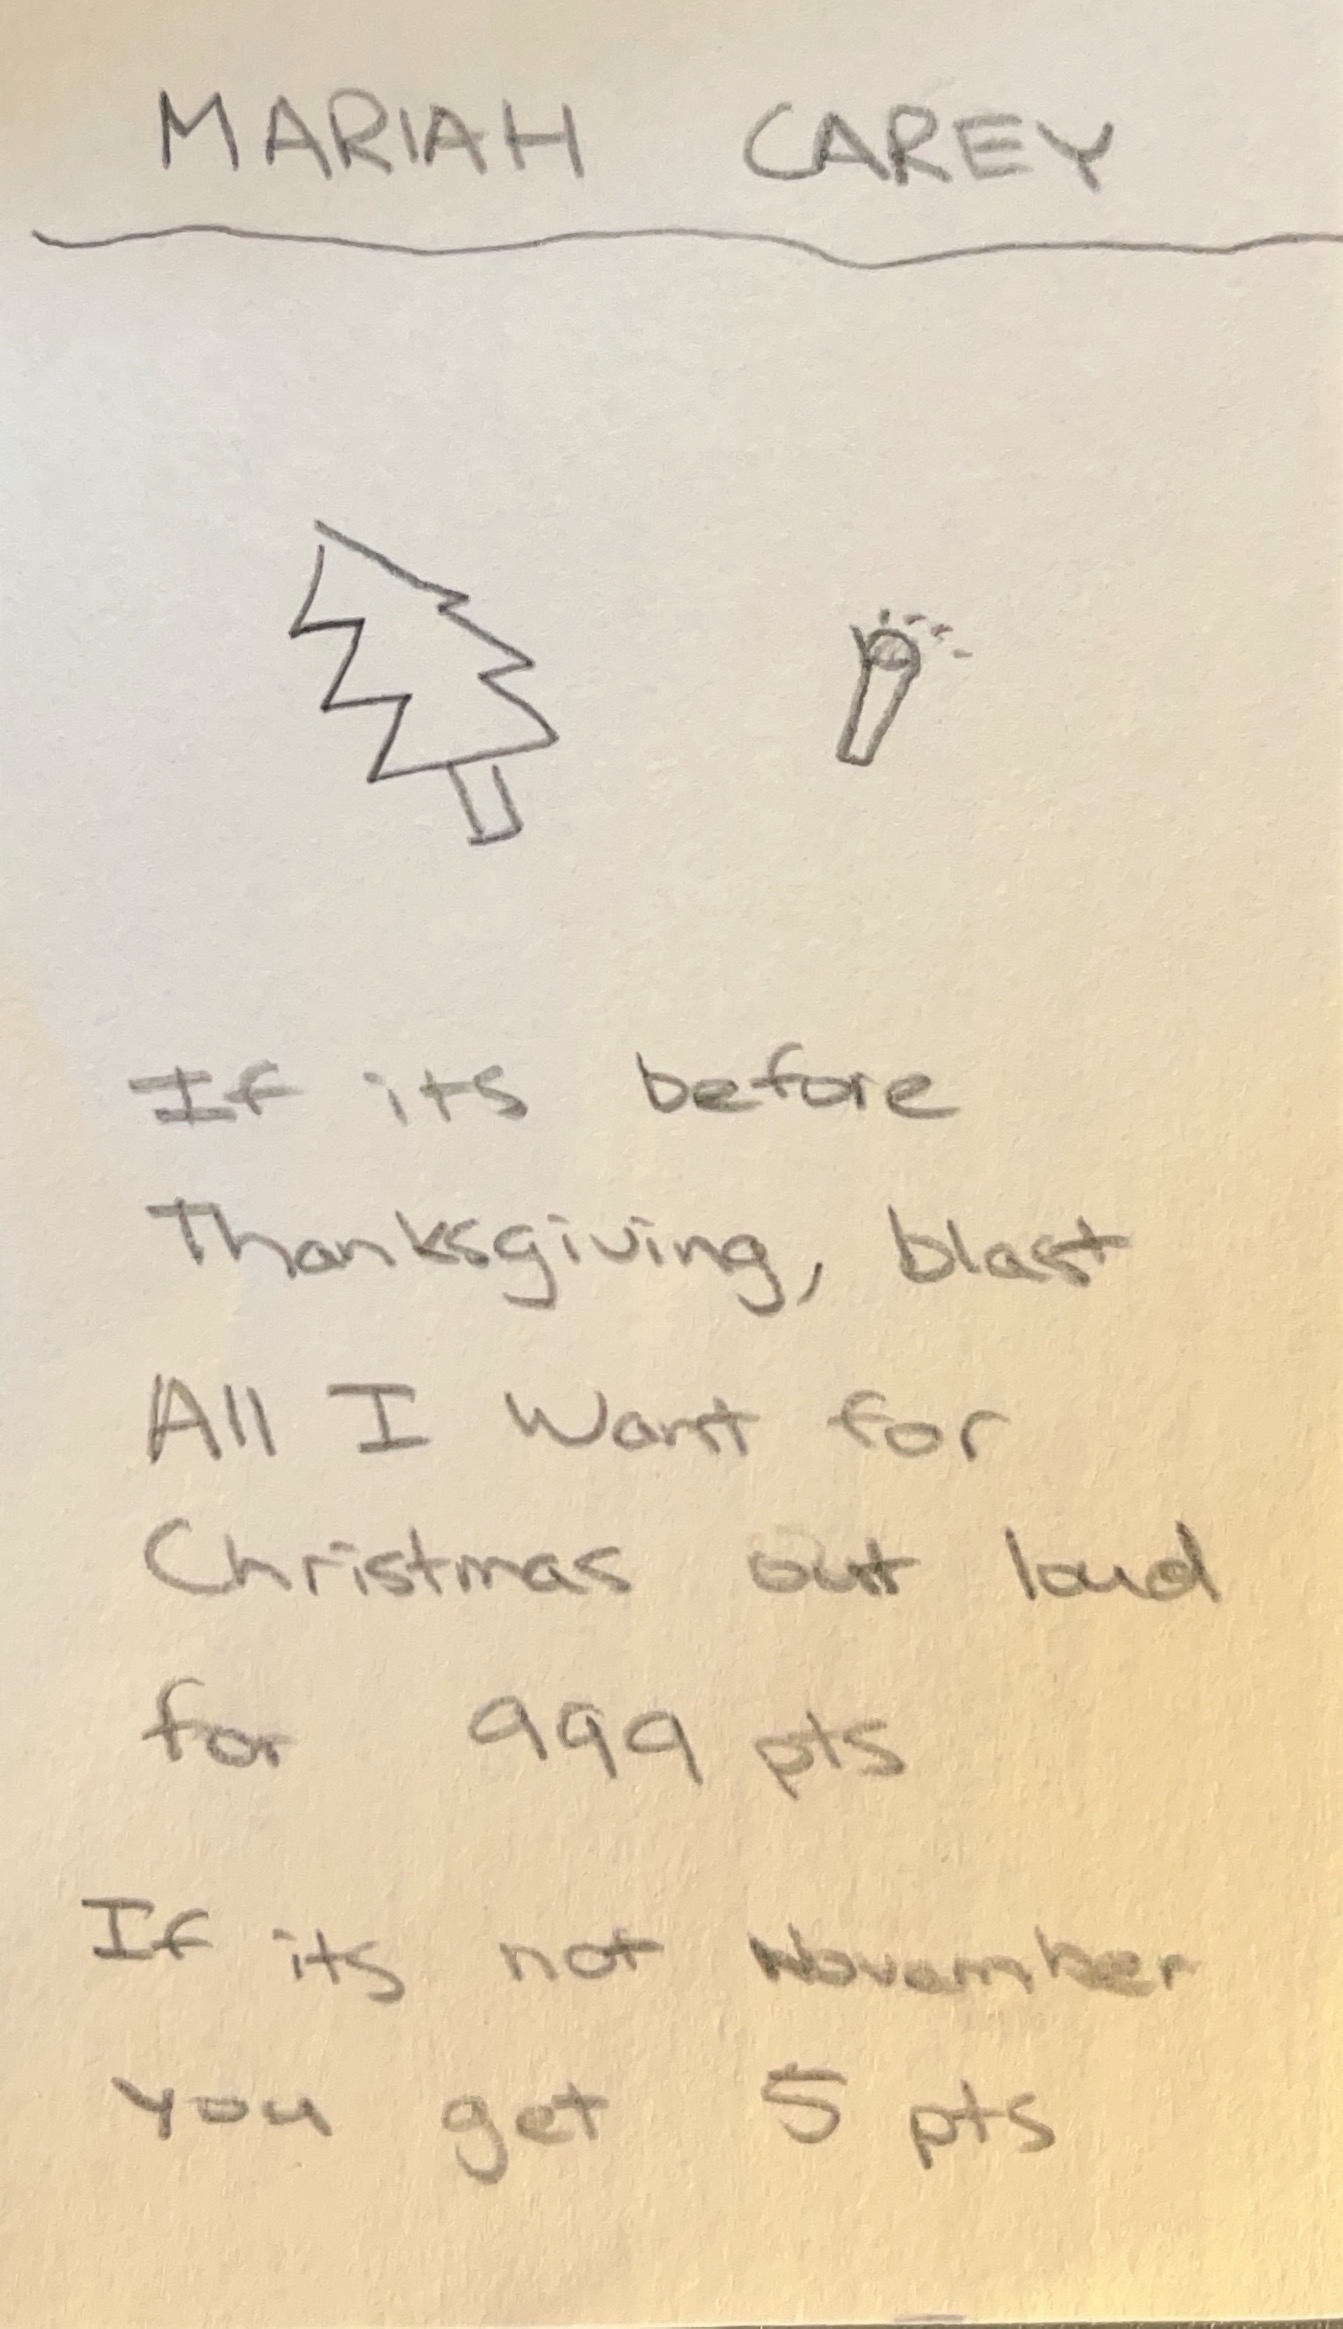 MARIAH CAREY
If its before
Thanksgiving, blast
All I Want for
Christmas out loud
for 999 pts
If its not November
you get 5 pts